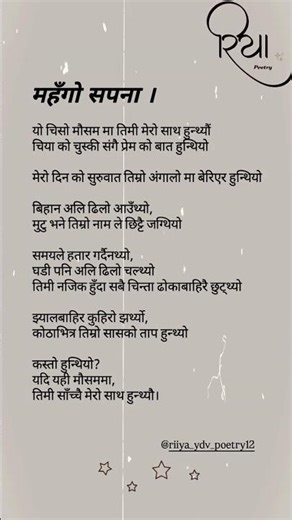 रिया
Poetry
महँगो सपना ।
यो चिसो मौसम मा तिमी मेरो साथ हुन्थ्यौं
चिया को चुस्की संगै प्रेम को बात हुन्थियो
मेरो दिन को सुरुवात तिम्रो अंगालो मा बेरिएर हुन्थियो
बिहान अलि ढिलो आउँथ्यो,
मुटु भने तिम्रो नाम ले छिट्टै जग्थियो
समयले हतार गर्दैनथ्यो,
घडी पनि अलि ढिलो चल्थ्यो
तिमी नजिक हुँदा सबै चिन्ता ढोकाबाहिरै छुट्थ्यो
झ्यालबाहिर कुहिरो झर्थ्यो,
कोठाभित्र तिम्रो सासको ताप हुन्थ्यो
कस्तो हुन्थियो?
यदि यही मौसममा,
तिमी साँच्चै मेरो साथ हुन्थ्यौ।
@riiya_ydv_poetry12